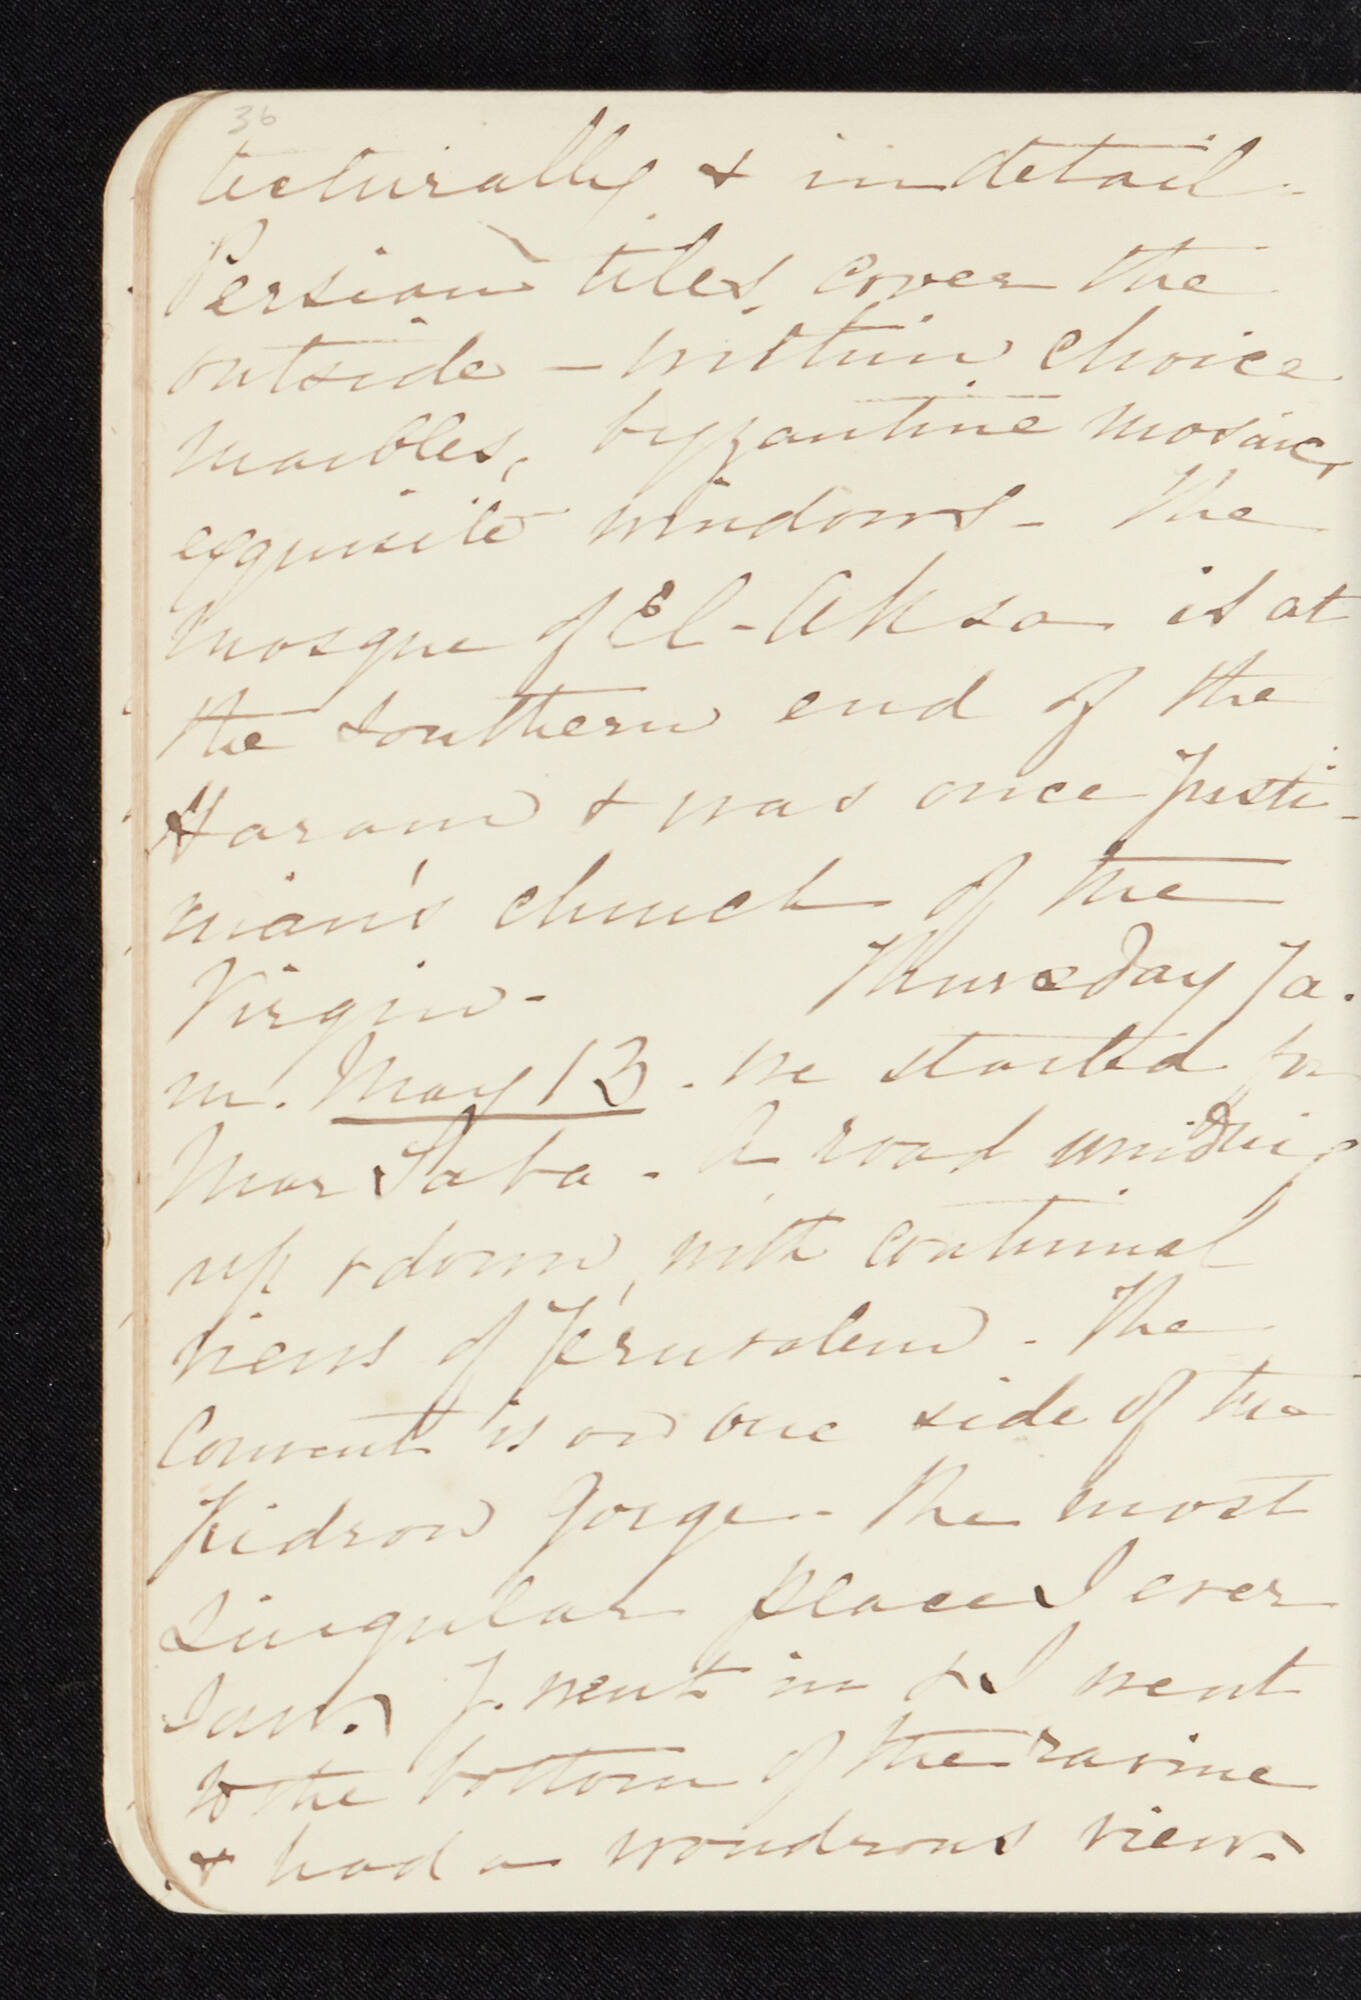 36
tecturally & in detail -
Persian tiles, cover the
outside - within choice
marbles, byzantine mosaic,
exquisite windows - The
Mosque of El-Aksa is at
the southern end of the
Haram & was once Justi-
nian's church of the
Virgin - Thursday Ja.
m. May 13 - we started for
Mar Saba - A road winding
up & down, with continual
views of Jerusalem - The
Convent is on one side of the
Kidron Gorge - The most
singular place I ever
saw. J. went in & I went
to the bottom of the ravine
& had a wondrous view.